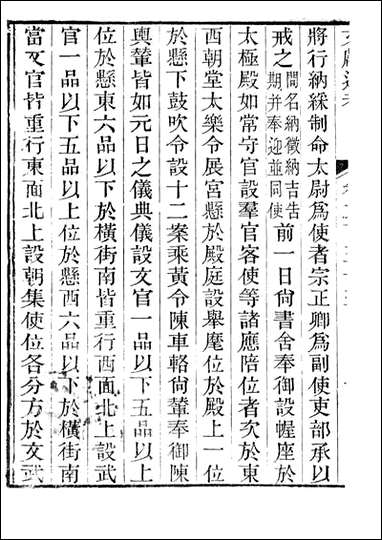 將行納綵制命太尉爲使者宗正卿爲副使吏部承以
戒之問名納徵納吉告期并奉迎並同使前一日尙書舍奉御設幄座於
太極殿如常守官設羣官客使等諸應陪位者次於東
西朝堂太樂令展宮懸於殿庭設舉麾位於殿上一位
於懸下鼓吹令設十二案乘黃令陳車輅尙輦奉御陳
輿輦皆如元日之儀典儀設文官一品以下五品以上
位於懸東六品以下於橫街南皆重行西面北上設武
官一品以下五品以上位於懸西六品以下於橫街南
當文官皆重行東面北上設朝集使位各分方於文武